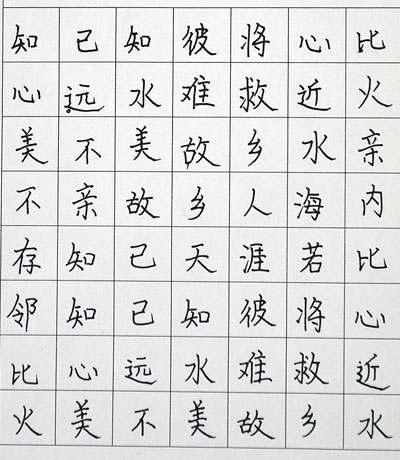 知己知彼将心比
心远水难救近火
美不美故乡水亲
不亲故乡人海内
存知己天涯若比
邻知己知彼将心
比心远水难救近
火美不美故乡水